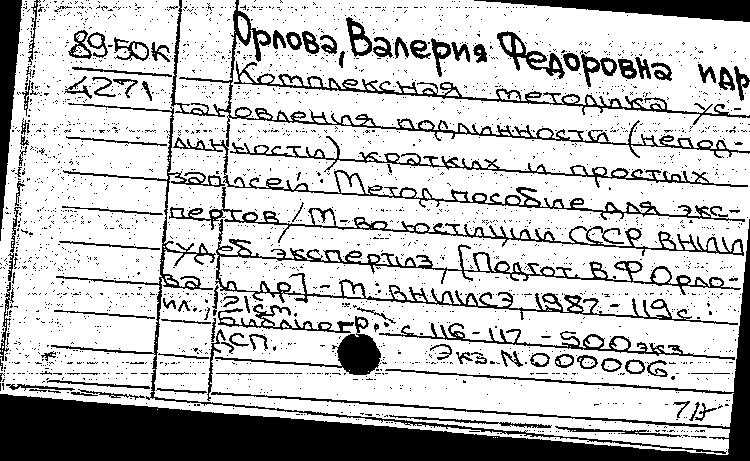 89-50К
4271
Орлова, Валерия Федоровна и др
Комплексная методика ус-
тановления подлинности (непод-
линности) кратких и простых
записей: Метод. пособие для экс-
пертов / М-во юстиции СССР, ВНИИ
судеб. экспертиз; [Подгот. В.Ф Орло-
ва и др] - М.: ВНИИСЭ, 1987. - 119 с.:
ил.; 21 см.
Библиогр.: с. 116-117 - 500 экз
ДСП. Экз. N 000006.